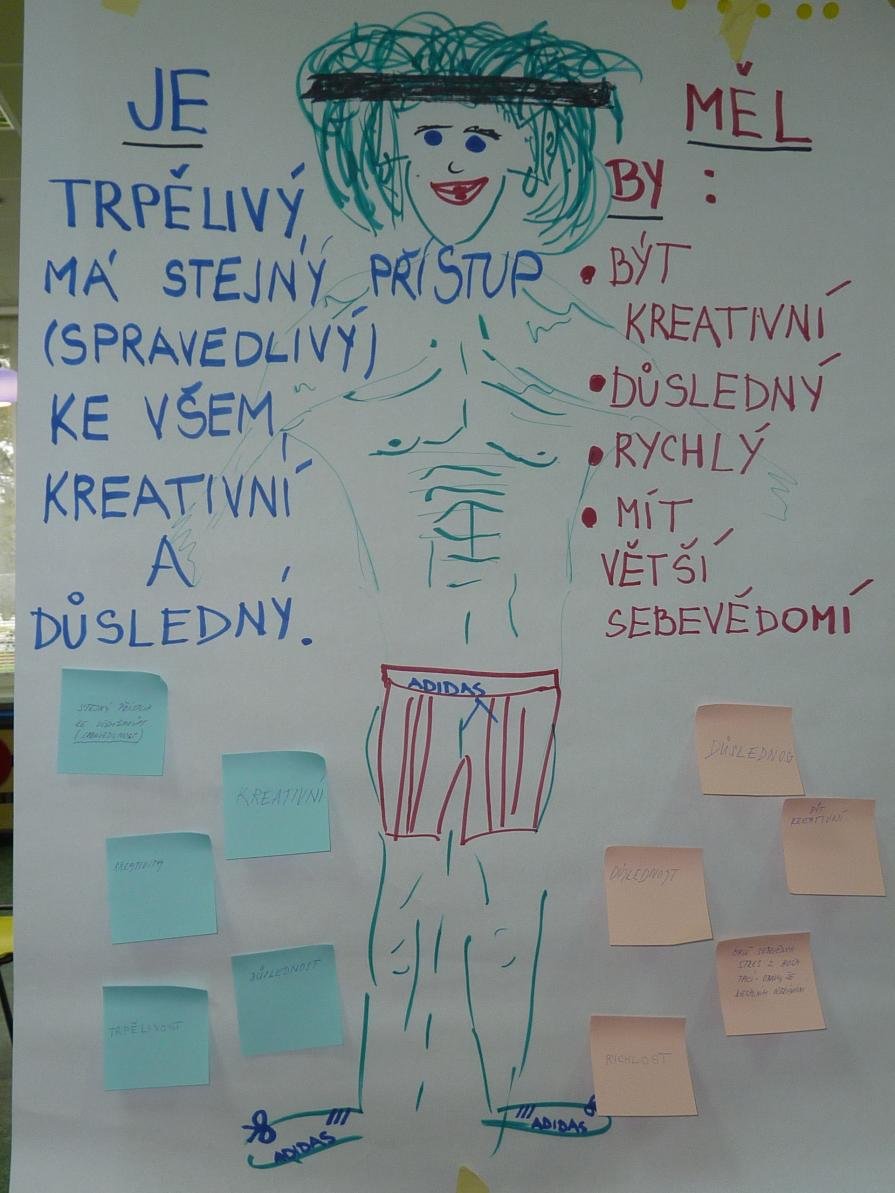 JE
TRPĚLIVÝ,
MÁ STEJNÝ PŘÍSTUP
(SPRAVEDLIVÝ)
KE VŠEM,
KREATIVNÍ
A
DŮSLEDNÝ.
MĚL
BY :
• BÝT
KREATIVNÍ
• DŮSLEDNÝ
• RYCHLÝ
• MÍT
VĚTŠÍ
SEBEVĚDOMÍ
ADIDAS
STEJNÝ
KE
KREATIVNÍ
KREATIVITA
DŮSLEDNOST
TRPĚLIVOST
DŮSLEDNOST
BÝT
KREATIVNÍ
DŮSLEDNOST
STRES Z
RYCHLOST
ADIDAS
ADIDAS